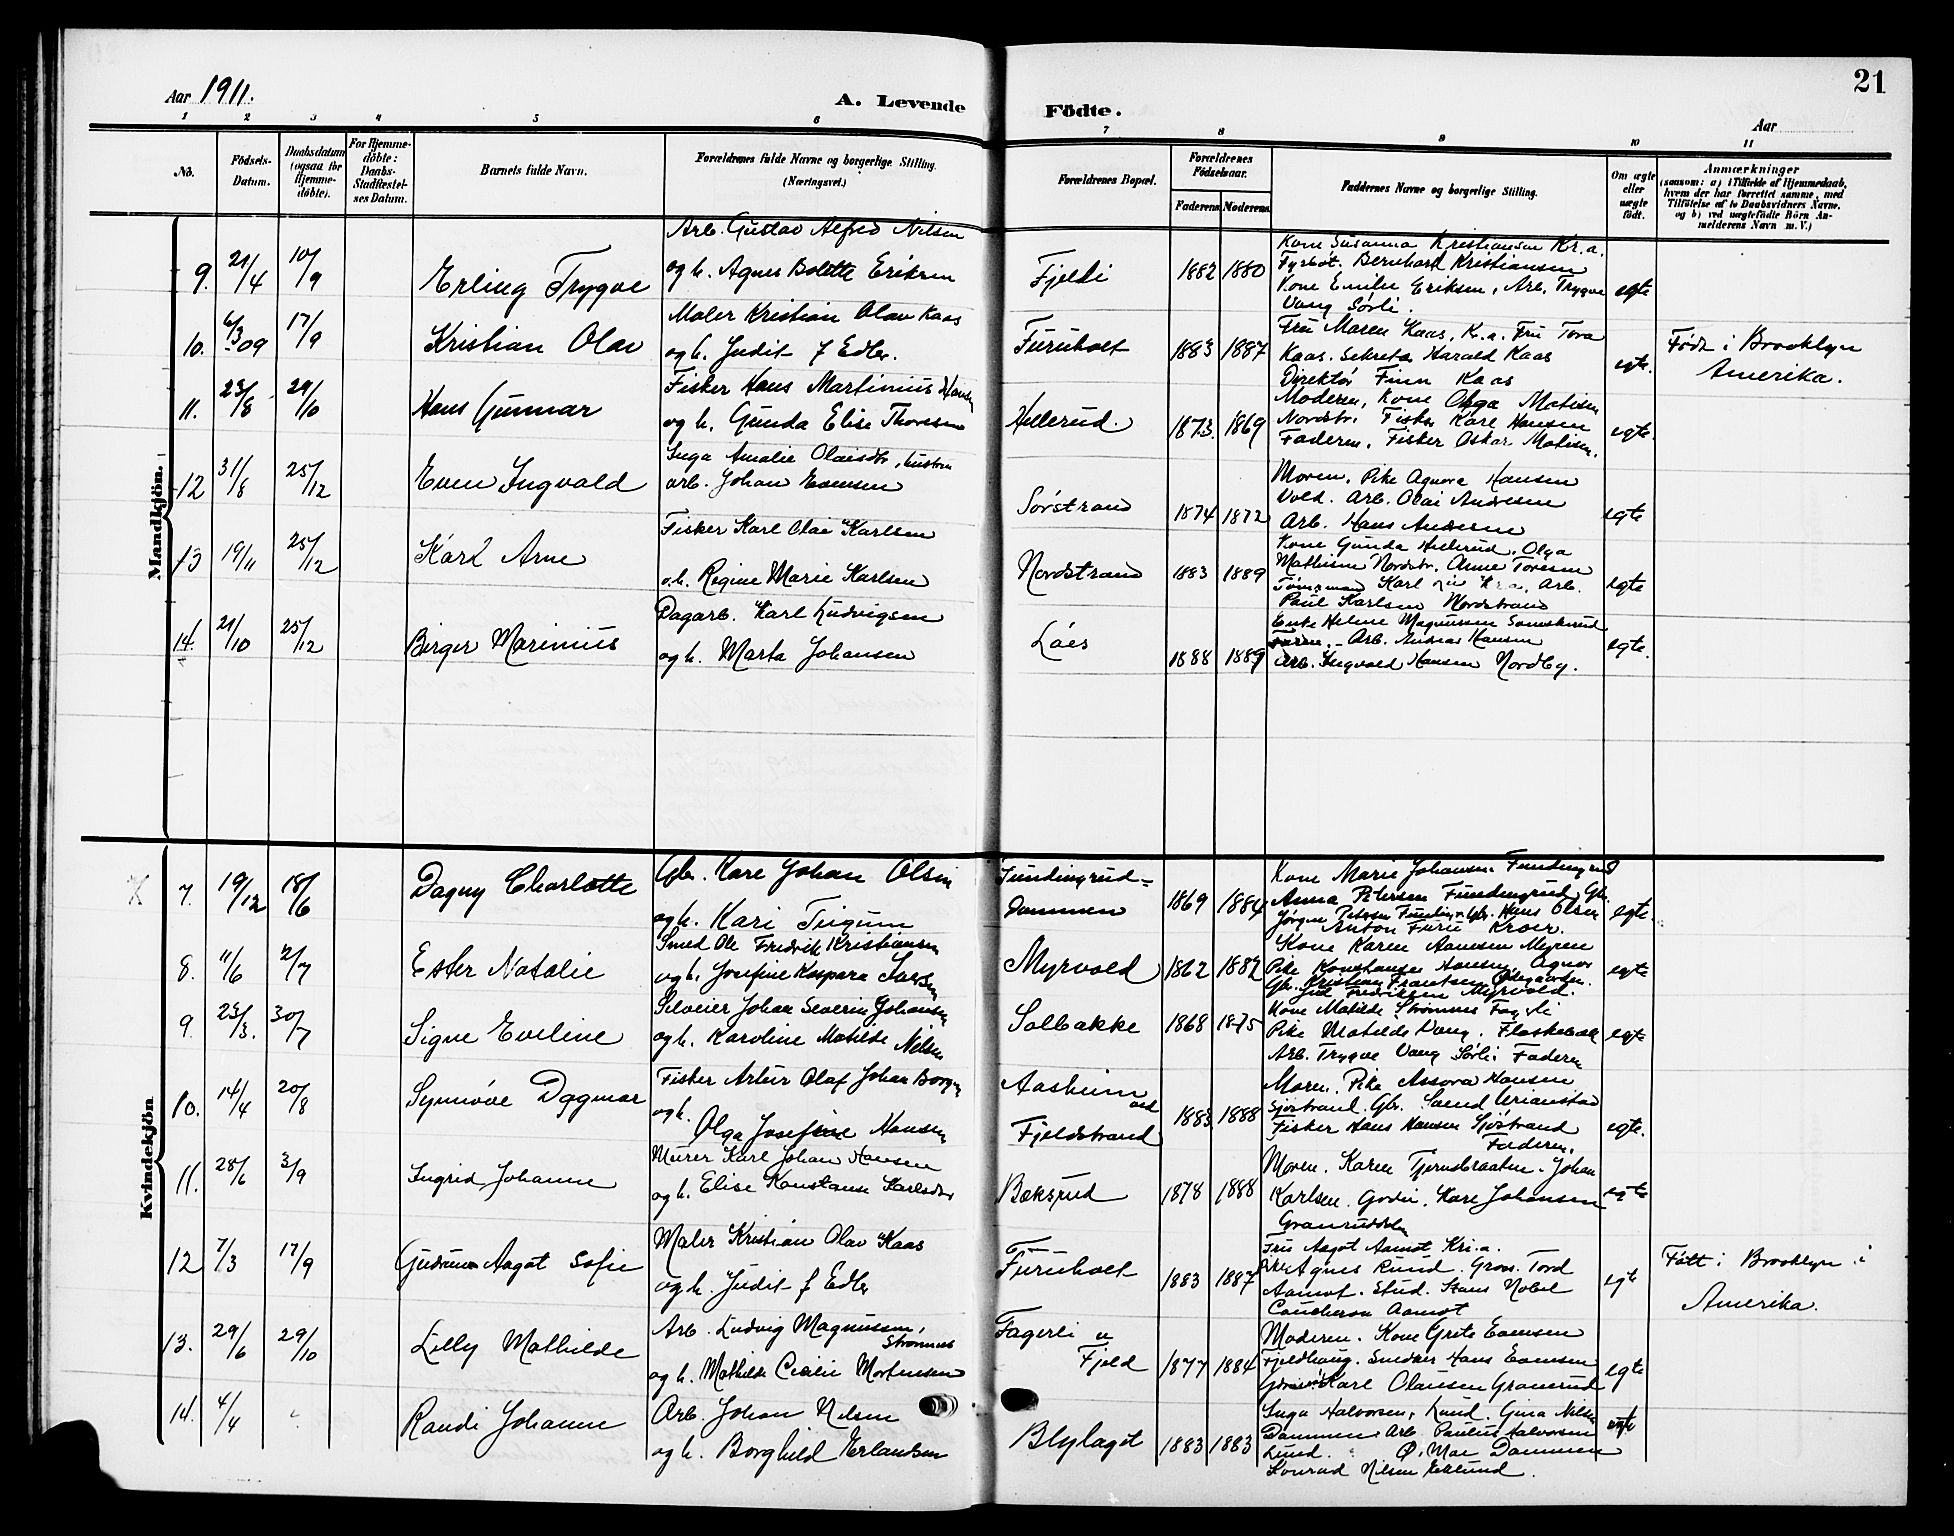 21
Aar 1911.
A. Levende Födte.
Aar
1 2 3 4 5 6 7 8 9 10 11
No.
Födsels-Datum.
Daabsdatum (ogsaa for Hjemmedöbte).
For Hjemmedöbte: Daabs-Stadfæstelses Datum.
Barnets fulde Navn.
Forældrenes fulde Navne og borgerlige Stilling. (Næringsvei.)
Forældrenes Bopæl.
Forældrenes Födselsaar.
Faderens Moderens
Faddernes Navne og borgerlige Stilling.
Om ægte eller uægte födt.
Anmærkninger
(saasom: a) i Tilfælde af Hjemmedaab, hvem der har forrettet samme, med Tilföielse af to Daabsvidners Navne. og b) ved uægtefödte Börn Anmelderens Navn m. V.)
Mandkjön.
9. 21/4 10/9 Erling Trygve
Arb. Gustav Alfred Nilsen
og h. Agnes Bolette Eriksen
Fjeldi 1882 1880
Kone Susanna Kristiansen Kr.a.
Fyrbøt. Bernhard Kristiansen
Kone Emilie Eriksen, Arb. Trygve
Vang Sørli.
egte
10. 6/3 09 17/9 Kristian Olav
Maler Kristian Olav Kaas
og h. Judit f Edler.
Furuholt 1883 1887
Fru Maren Kaas, Kr.a. Fru Tova
Kaas. Sekretæ Harald Kaas
Direktør Finn Kaas
egte.
Født i Brooklyn
Amerika.
11. 23/8 29/10 Hans Gunnar
Fisker Hans Martinius Hansen
og h. Gunda Elise Thoresen
Hellerud. 1873. 1869
Moderen, Kone Olga Matisen
Nordstr. Fisker Karl Hansen
Faderen, Fisker Oskar Matisen.
egte.
12 31/8 25/12 Even Ingvald
Inga Amalie Olaisdtr, hustru
arb. Johan Evensen
Sørstrand 1874 1872
Moren, Pike Agnora Hansen
Vold. Arb. Olai Andresen
Arb. Hans Andersen
egte
13 19/11 25/12 Karl Arne
Fisker Karl Olai Karlsen
o.h. Regine Marie Karlsen
Nordstrand 1883 1889
Kone Gunda Hellerud, Olga
Mathisen Nordstr. Anne Toresen
Tømmerm Karl Kr.a, Arb.
Paul Karlsen Nordstrand
egte
14. 21/10 25/12 Birger Marinius
Dagarb. Karl Ludvigsen
og h. Marta Johansen
Låes 1888 1889
Enke Helene Magnussen
Faren. Arb. Andreas Hansen
Arb. Ingvald Hansen Nordby.
egte.
Kvindekjön
X 7. 19/12 18/6 Dagny Charlotte
Gbr. Kare Johan Olsen
og h. Kari Tugum
Fundingrud=
dammen 1869 1884
Kone Marie Johansen Fundingrud
Anna Petersen Fundingrud, Gbr
Jørgen Petersen Gbr. Hans Olsen
Anton Furu Kroer.
egte.
8. 11/6 2/7 Ester Natalie
Smed Ole Fredrik Kristiansen
og h. Josefine Kaspara Larsen
Myrvold 1862 1882
Kone Karen Aanesen Myren
Pike Konstanse Hansen, Agnor
Gbr. Kristian Frantsen Ødegaarden.
Fredriksen Myrvold.
egte
9. 23/3. 30/7 Signe Eveline
Johan Severin Johansen
og h. Karoline Matilde Nilsen
Solbakke 1868 1875
Kone Matilde Strømnes Fagerli
Pike Matilde Vang. Flaskebæk
Arb. Trygve Vang Sørli Faderen
egte
10. 14/4 20/8 Synnøve Dagmar
Fisker Artur Olaf Johan Borgen
og h. Olga Josefine Hansen
Aasheim ved
Fjeldstrand 1883 1888
Moren. Pike Assora Hansen
Sjøstrand. Gbr. Svend Urianstad
Fisker Hans Hansen Sjøstrand
Faderen.
egte.
11. 28/6 3/9 Ingrid Johanne
Murer Karl Johan Hansen
og h. Elise Konstanse Karlsdtr
Bøksrud 1878 1888
Moren. Karen Tjernsbraaten. Johan
Karlsen. Kare Johansen
Granrudden
egte
12 7/3 17/9 Gudrun Aagot Sofie
Maler Kristian Olav Kaas
og h. Judit f Edler
Furuholt 1883 1887
Fru Aagot Aamot Kri.a.
Pike Agnes Rund. Gros. Tord
Aamot. Stud. Hans Nobel
Coucheron Aamot
egte
Født i Brooklyn i
Amerika.
13. 29/6 29/10 Lilly Mathilde
Arb. Ludvig Magnussen,
Strømnes
og h. Mathilde Cecilie Mortensen
Fagerli u
Fjeld 1877 1884
Moderen. Kone Grete Evensen
Fjeldhaug. Snedker Hans Evensen
Karl Olausen Granerud
egte
14. 4/4 Randi Johanne
Arb. Johan Nilsen
og h. Borghild Erlandsen
Blylaget 1883 1883
Inga Halvorsen, Lund. Gina Nilsen
Dammen Arb. Paulus Halvorsen
Lund. " Ø. Moe Dammen
Konrad Nilsen Eklund.
egte